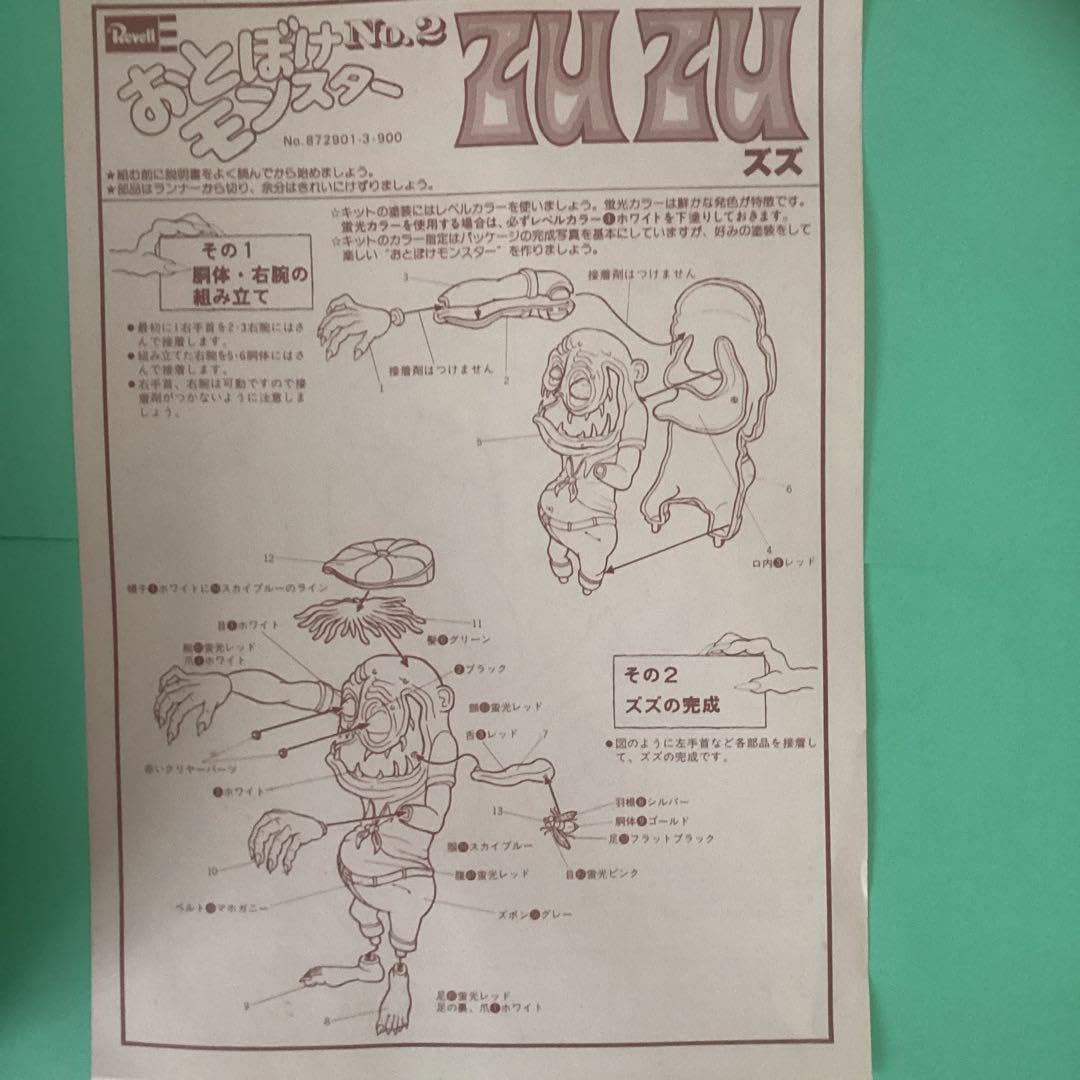 Revell
おとぼけ
モンスター
No.2
ZUZU
ズズ
No.872901-3-900
★組む前に説明書をよく読んでから始めましょう。
★部品はランナーから切り、余分はきれいにけずりましょう。
☆キットの塗装にはレベルカラーを使いましょう。蛍光カラーは鮮かな発色が特徴です。
蛍光カラーを使用する場合は、必ずレベルカラー❶ホワイトを下塗りしておきます。
☆キットのカラー指定はパッケージの完成写真を基本にしていますが、好みの塗装をして
楽しい“おとぼけモンスター”を作りましょう。
その1
胴体・右腕の
組み立て
●最初に1右手首を2・3右腕にはさ
んで接着します。
●組み立てた右腕を5・6胴体にはさ
んで接着します。
●右手首、右腕は可動ですので接
着剤がつかないように注意しま
しょう。
3
接着剤はつけません
接着剤はつけません
1
2
5
6
4
口内❸レッド
12
帽子❶ホワイトにスカイブルーのライン
11
髪❻グリーン
目❶ホワイト
蛍光レッド
爪❶ホワイト
❷ブラック
顔蛍光レッド
舌❸レッド
7
赤いクリヤーパーツ
ホワイト
その2
ズズの完成
●図のように左手首など各部品を接着し
て、ズズの完成です。
13
羽根❽シルバー
胴体❾ゴールド
足フラットブラック
目蛍光ピンク
服スカイブルー
腹蛍光レッド
10
ベルトマホガニー
ズボングレー
9
8
足蛍光レッド
足の裏、爪❶ホワイト